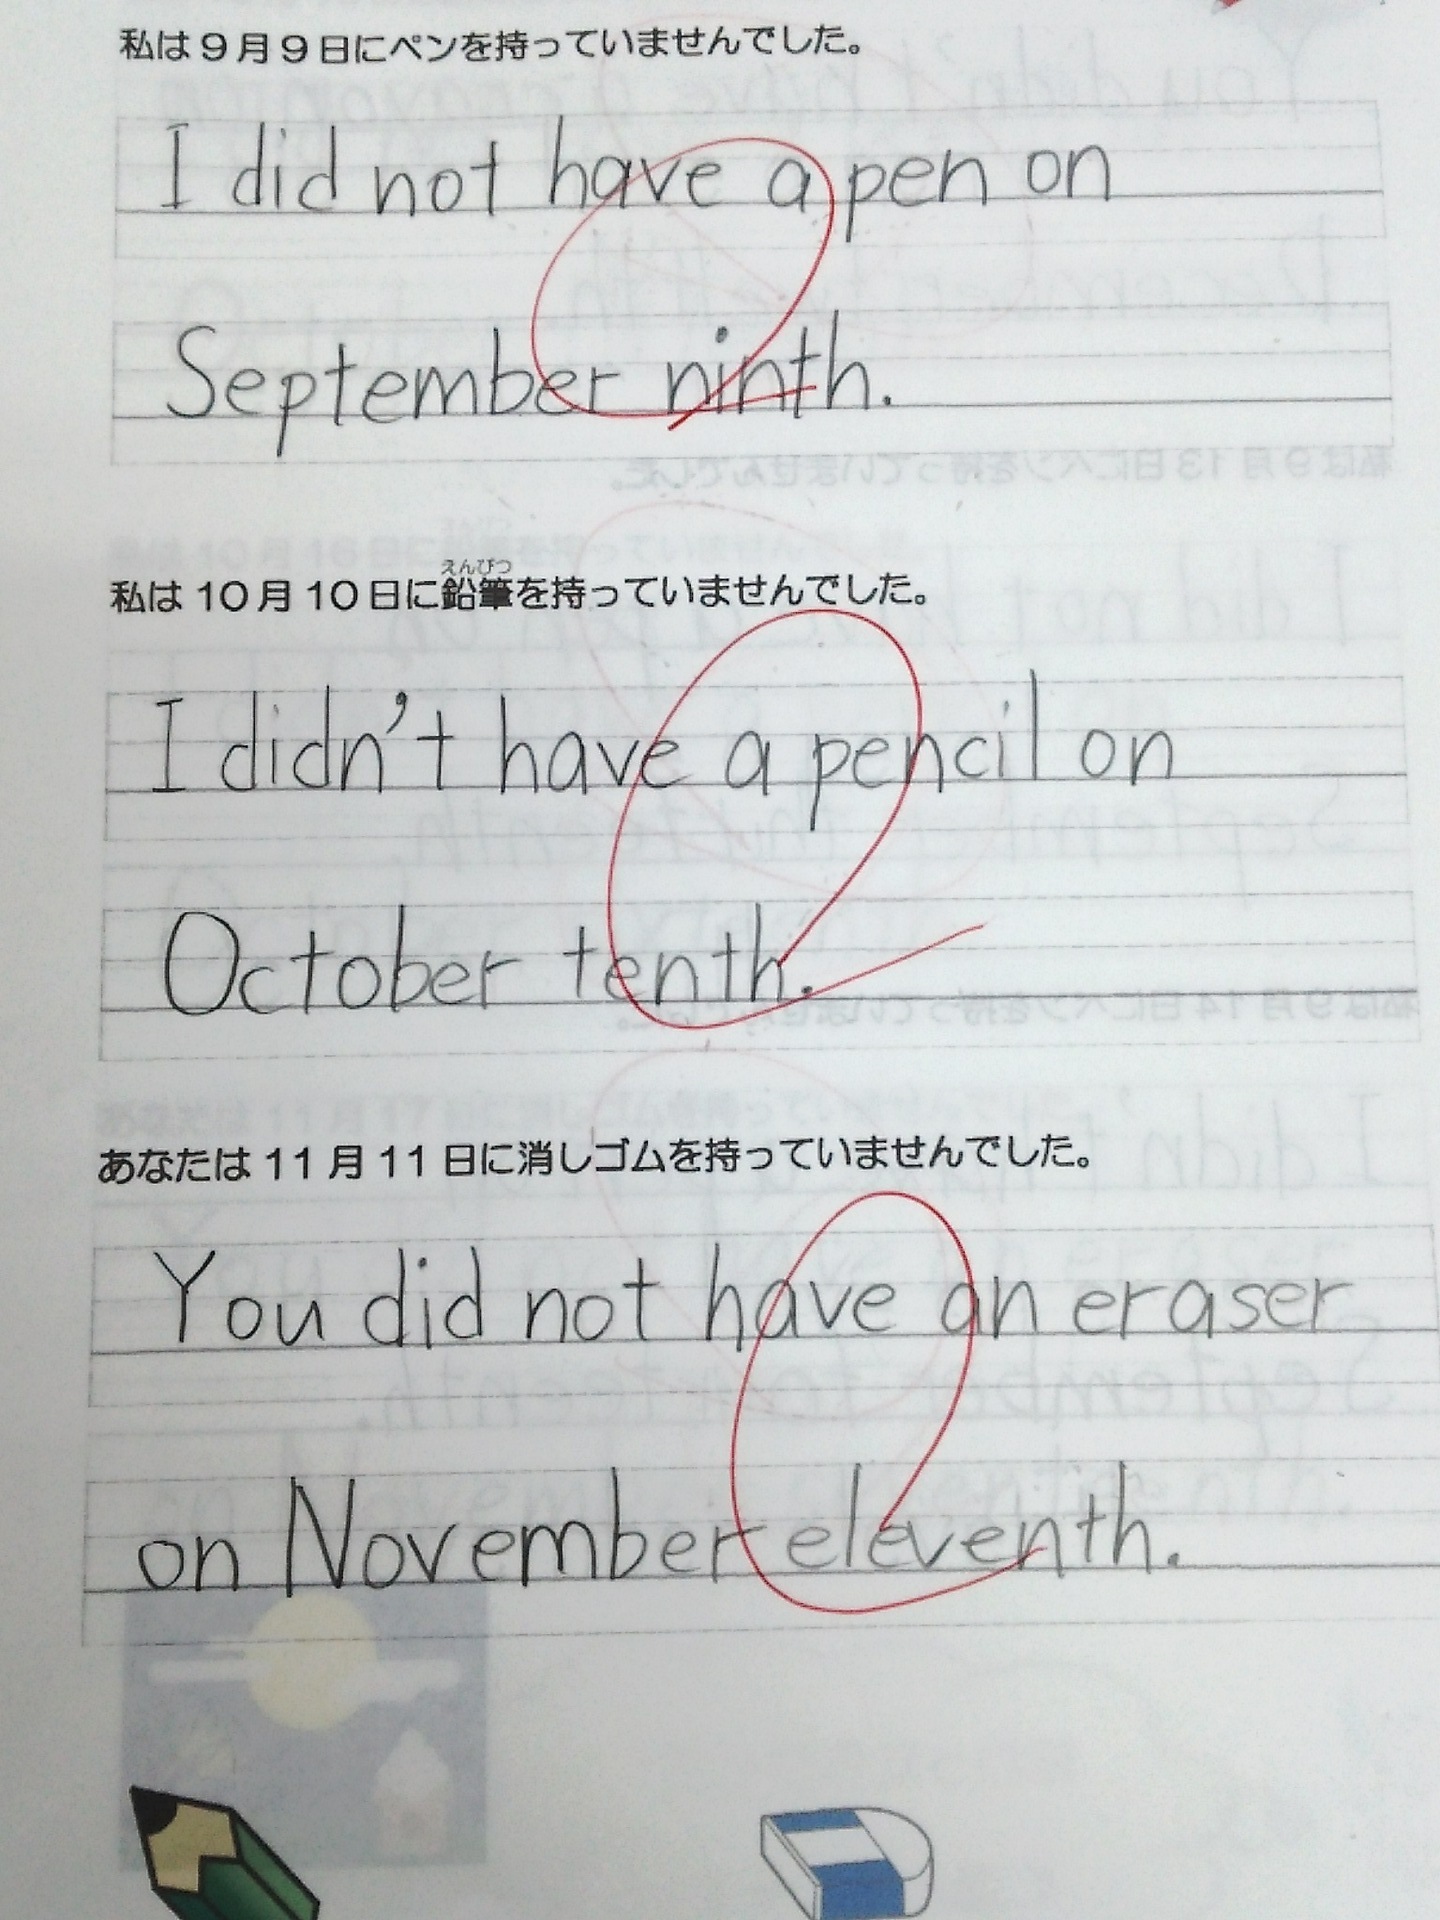 私は9月9日にペンを持っていませんでした。
I did not have a pen on
September ninth.
私は10月10日に鉛筆を持っていませんでした。
えんぴつ
I didn't have a pencil on
October tenth.
あなたは11月11日に消しゴムを持っていませんでした。
You did not have an eraser
on November eleventh.